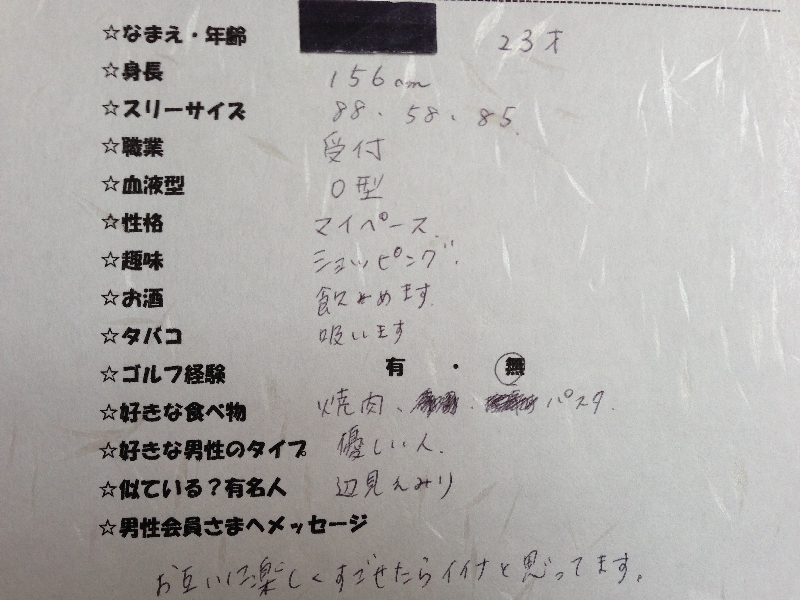 ☆なまえ・年齢 23才
☆身長 156cm
☆スリーサイズ 88、58、85.
☆職業 受付
☆血液型 O型
☆性格 マイペース.
☆趣味 ショッピング.
☆お酒 飲めます.
☆タバコ 吸います
☆ゴルフ経験 有・無
☆好きな食べ物 焼肉、パスタ.
☆好きな男性のタイプ 優しい人.
☆似ている?有名人 辺見えみり
☆男性会員さまへメッセージ
お互いに楽しくすごせたらイイナと思ってます。